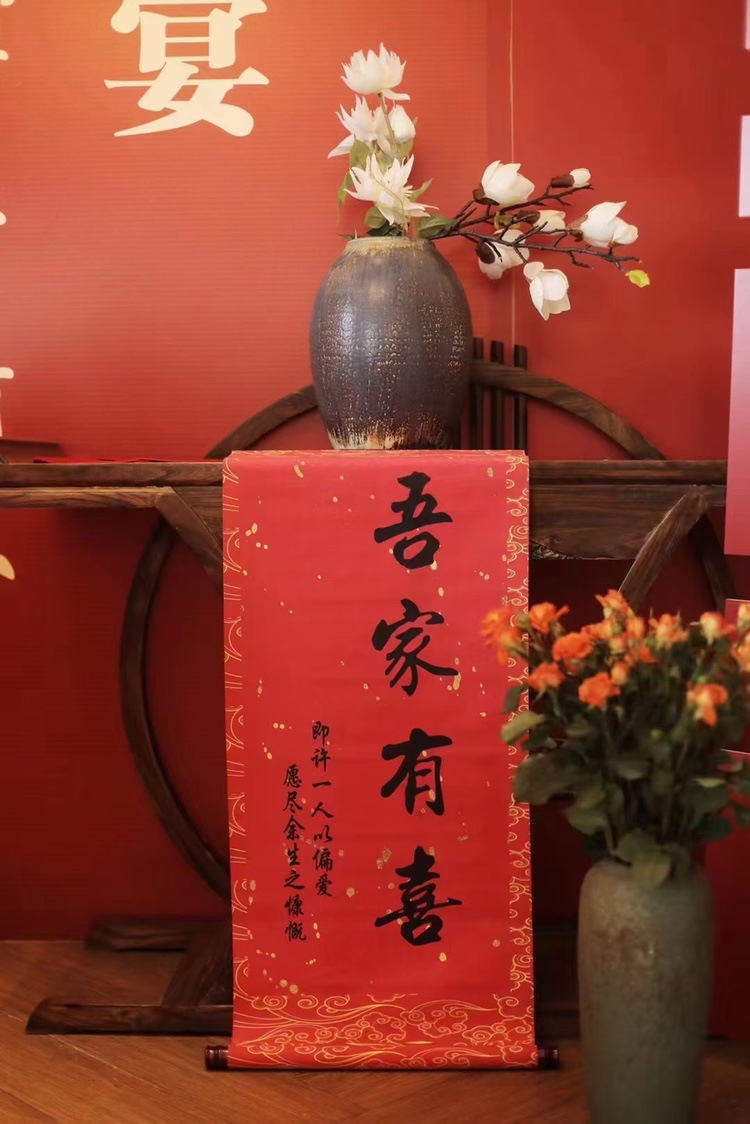 宴
吾家有喜
即许一人以偏爱
愿尽余生之慷慨